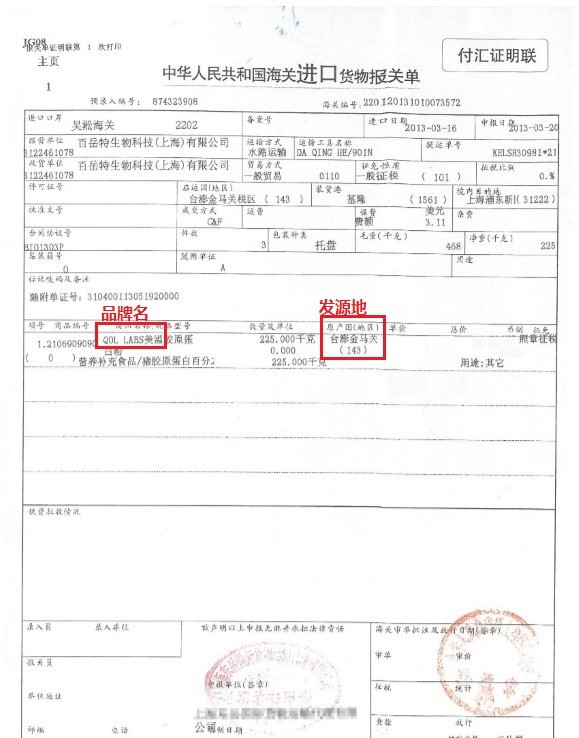 JG08
报关单证明联第 1 次打印
主页
1
付汇证明联
中华人民共和国海关进口货物报关单
预录入编号: 874323908
海关编号: 220120131010073572
进口口岸 备案号 进口日期 申报日期
吴淞海关 2202 2013-03-16 2013-03-20
经营单位 百岳特生物科技(上海)有限公司 运输方式 运输工具名称 提运单号
3122461078 水路运输 DA QING HE/901N KELSH3098I*21
收货单位 百岳特生物科技(上海)有限公司 贸易方式 征免性质 征税比例
3122461078 一般贸易 0110 一般征税 ( 101 ) 0.%
许可证号 启运国(地区) 装货港 境内目的地
台澎金马关税区 ( 143 ) 基隆 (1561) 上海浦东新(31222)
批准文号 成交方式 运费 保费 美元 杂费
C&F 费额 3.11
合同协议号 件数 包装种类 毛重(千克) 净重(千克)
3 托盘 468 225
集装箱号 随附单证 用途
0 A
标记唛码及备注
随附单证号: 310400113051920000
品牌名 发源地
项号 商品编号 商品名称、规格型号 数量及单位 原产国(地区) 单价 总价 币制 征免
1.2106909090 QOL LABS美溢胶原蛋 225.000千克 台澎金马关 照章征税
( 0 ) 白粉 0.000 (143)
营养补充食品/猪胶原蛋白百分 225.000千克 用途:其它
税费征收情况
录入员 录入单位 兹声明以上申报无讹并承担法律责任 海关审单批注及放行日期(签章)
审单 审价
报关员
申报单位(签章)
征税 统计
单位地址
查验 放行
公司
邮编 电话 填制日期